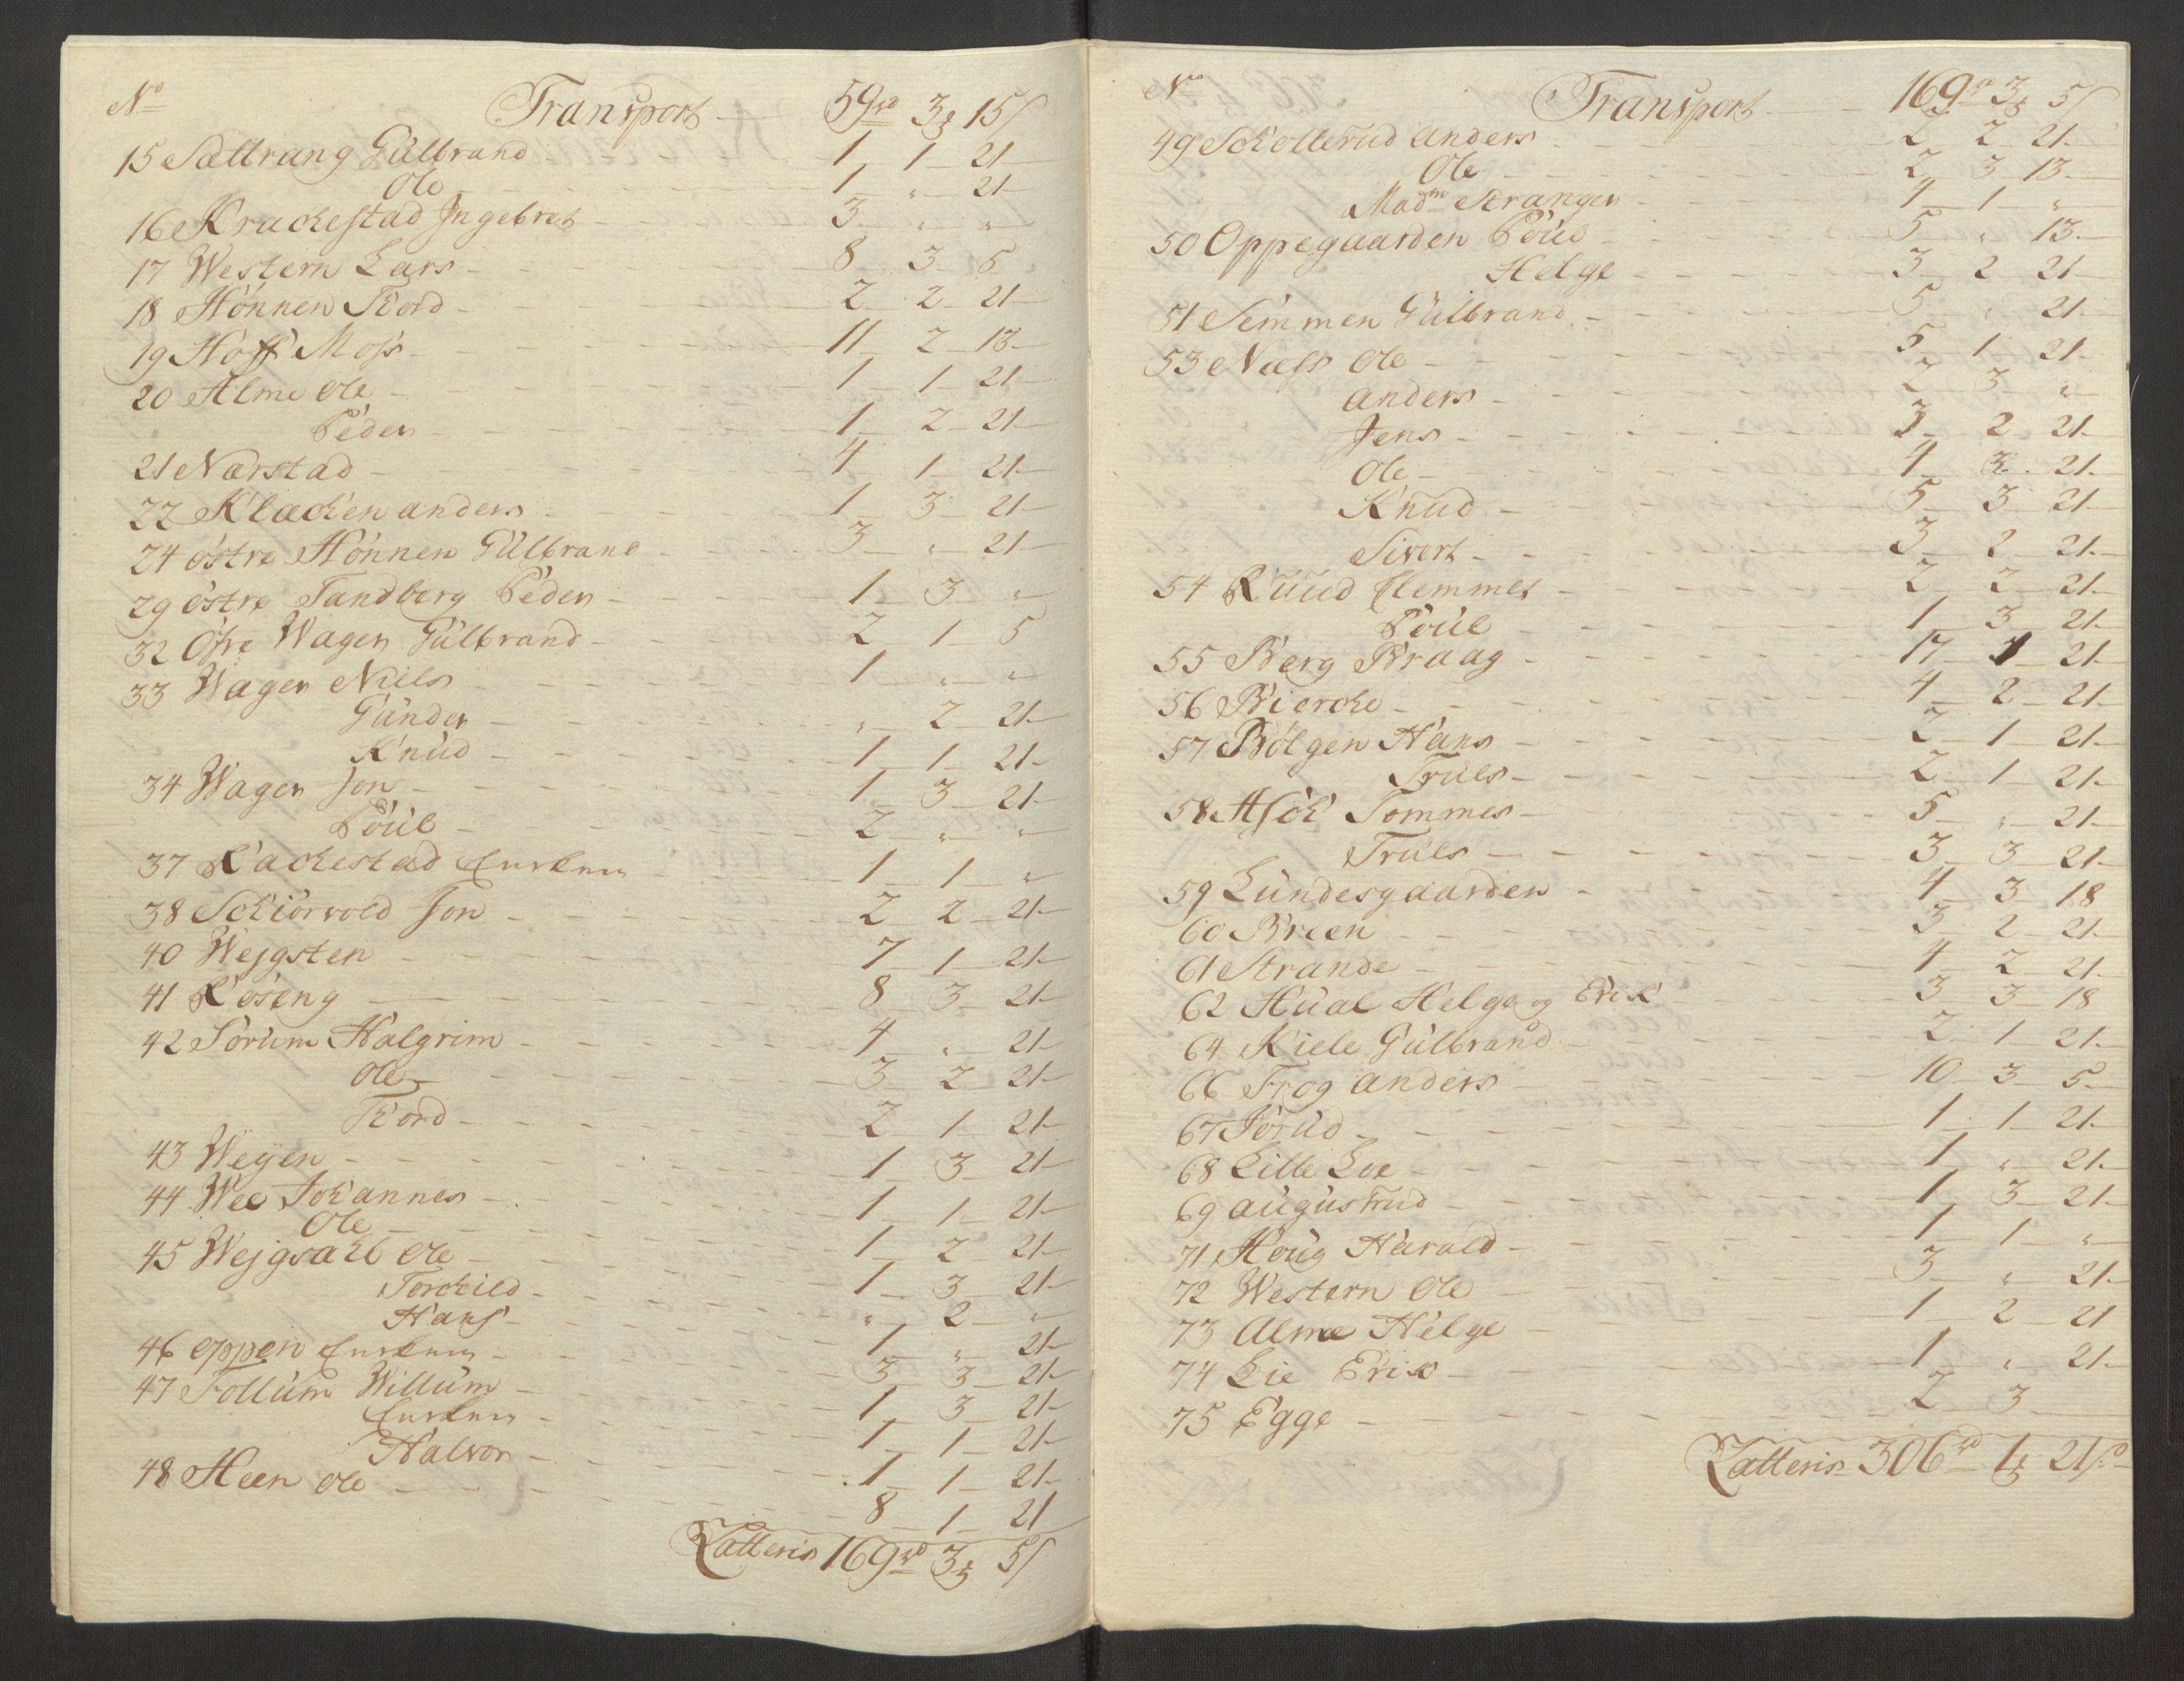 No Transport 59rd 3 15/
15 Sættrang Gulbrand 1 1 21
Ole 1 " 21
16 Krackestad Ingebret 3 " "
17 Western Lars 8 3 5
18 Hönnen Tord 2 2 21
19 Hoff Moss 11 2 13
20 Alme Ole 1 1 21
Peder 1 2 21
21 Nærstad 4 1 21
22 Klæcken anders 1 3 21
24 östre Hönnen Gulbrand 3 " 21
29 östre Tandberg Peder 1 3 "
32 Öfre Wager Gulbrand 2 1 5
33 Wager Niels 1 " "
Gunder " 2 21
Knud 1 1 21
34 Wager Jon 1 3 21
Poul 2 " "
37 Rackestad Enken 1 1 "
38 Schiörvold Jon 2 2 21
40 Wejgsten 7 1 21
41 Röseng 8 3 21
42 Sørum Halgrim 4 " 21
Ole 3 2 21
Tord 2 1 21
43 Weyen 1 3 21
44 Wee Johannes 1 1 21
Ole 1 2 21
45 Wejgsahl Ole 1 3 21
Torchild " 2 "
Hans 1 " 21
46 oppen Enken 3 3 21
47 Follum Willum 1 3 21
Enken 1 1 21
Halvor 1 1 21
48 Heen Ole 8 1 21
Latteris 169rd 3 5/
No Transport 169rd 3 5/
49 Schollerud Anders 2 2 21
Ole 2 3 13
Madm Stranger 4 1 "
50 Oppegaarden Poul 5 " 13
Helge 3 2 21
51 Semmen Gulbrand 5 " 21
53 Næss Ole 5 1 21
anders 2 3 "
Jens 3 2 21
Ole 4 3 21
Knud 5 3 21
Sivert 3 2 21
54 Ruud Clemmet 2 2 21
Poul 1 3 21
55 Berg Braag 17 1 21
56 Biercke 4 2 21
57 Bölgen Hans 2 1 21
Truls 2 1 21
58 Ask Tommes 5 " 21
Truls 3 3 21
59 Lundesgaarden 4 3 18
60 Breen 3 2 21
61 Strande 4 2 21
62 Hual Helge og Erik 3 3 18
64 Kiele Gulbrand 2 1 21
66 Frog anders 10 3 5
67 Jörud 1 1 21
68 Lille Loe 1 " 21
69 augustrud 1 3 21
71 Houg Harald 1 1 "
72 Western Ole 3 " 21
73 Alme Helge 1 2 21
74 Lie Erik 1 " 21
75 Egge 2 3
Latteris 306rd 1 21/